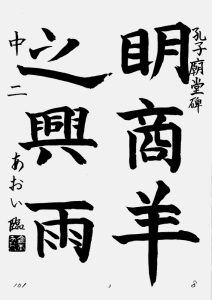 孔子廟堂碑
明商羊
之興雨
中二 あおい臨
101